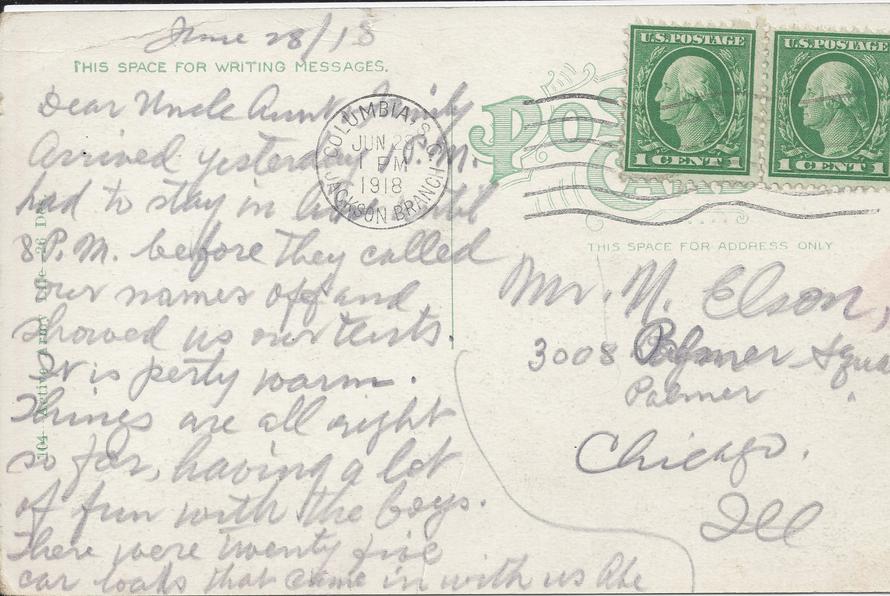 June 28/18
THIS SPACE FOR WRITING MESSAGES.
Dear Uncle Aunt & Family
Arrived yesterday P.M.
had to stay in until
8 P.M. before they called
our names off and
showed us our tents.
It is perty warm.
Things are all right
so far, having a lot
of fun with the boys.
There were twenty five
car loads that came in with us Abe
104 Active Army Life-26 D
COLUMBIA, S.C.
JUN 28
1 PM
1918
JACKSON BRANCH
POS
CA
U.S. POSTAGE
1 CENT 1
U.S. POSTAGE
1 CENT 1
THIS SPACE FOR ADDRESS ONLY
Mr. N. Elson,
3008 Palmer Squa
Palmer
Chicago.
Ill